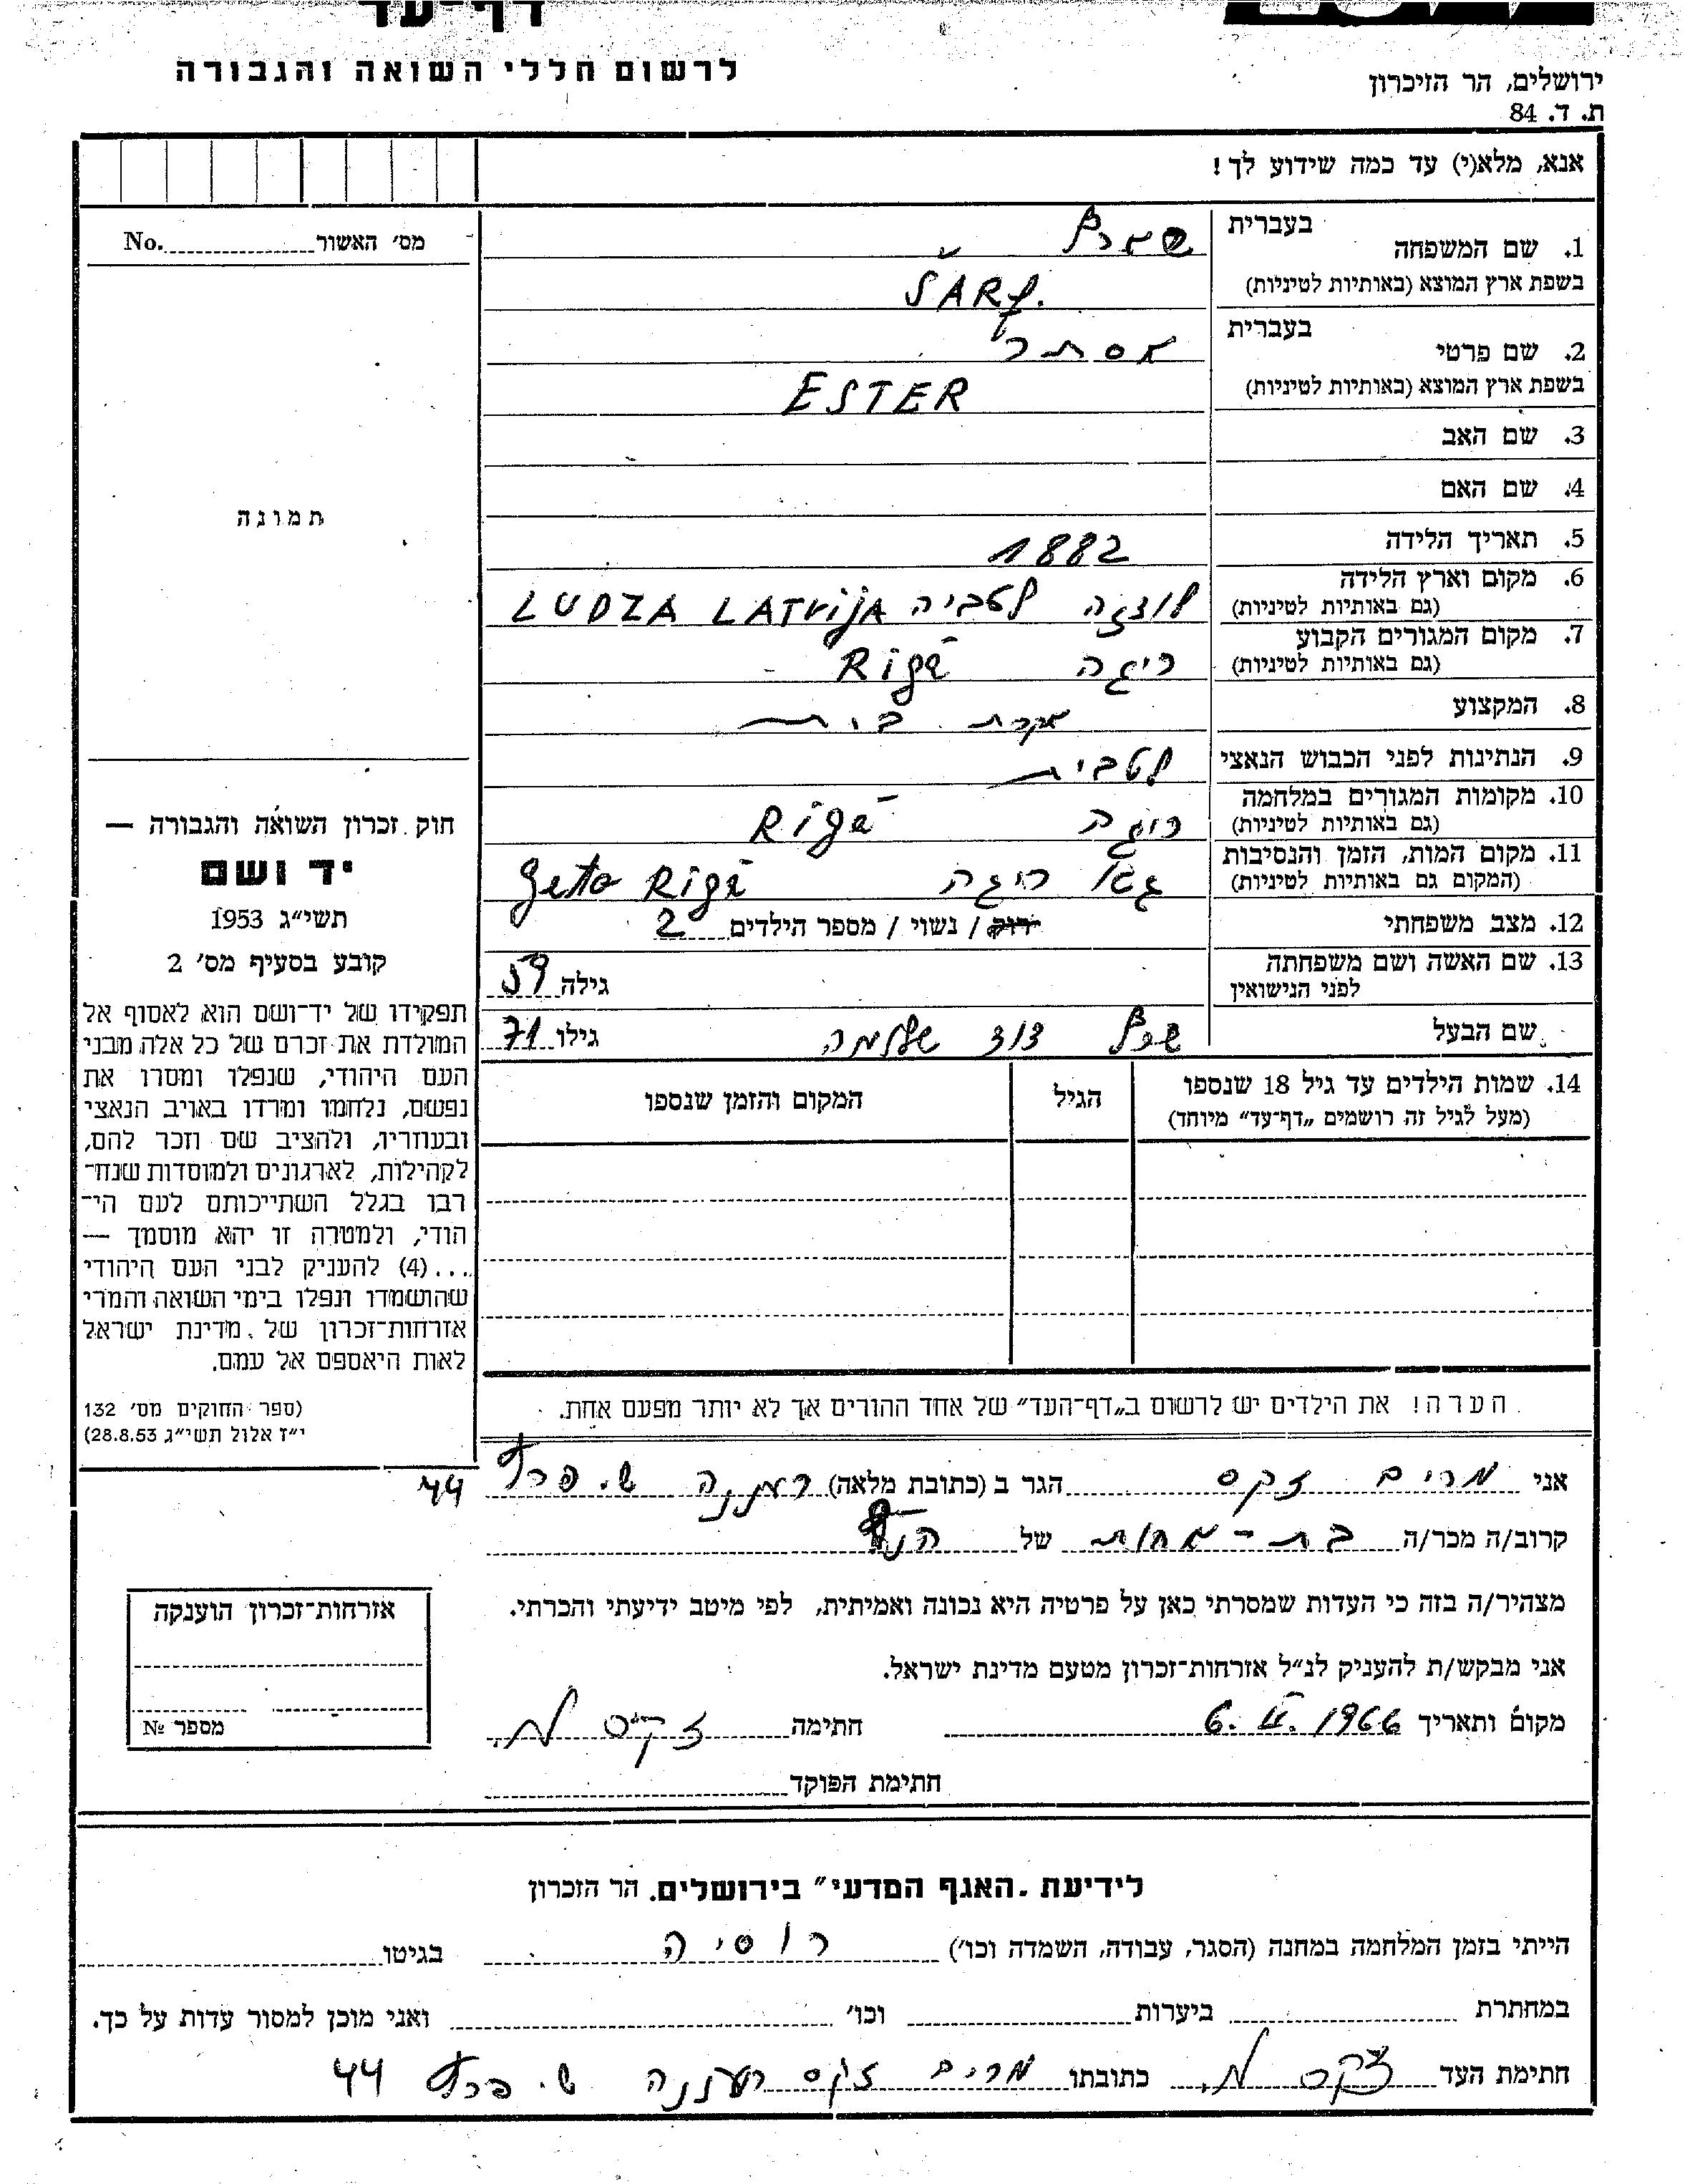 דף־עד
לרשום חללי השואה והגבורה
ירושלים, הר הזיכרון
ת. ד. 84
אנא, מלא(י) עד כמה שידוע לך!
מס׳ האשור No.
תמונה
1. שם המשפחה בעברית שארף
בשפת ארץ המוצא (באותיות לטיניות) ŠARF.
2. שם פרטי בעברית אסתר
בשפת ארץ המוצא (באותיות לטיניות) ESTER
3. שם האב
4. שם האם
5. תאריך הלידה 1882
6. מקום וארץ הלידה (גם באותיות לטיניות) לודזה לטביה LUDZA LATVIJA
7. מקום המגורים הקבוע (גם באותיות לטיניות) ריגה Rīgā
8. המקצוע עקרת בית
9. הנתינות לפני הכבוש הנאצי לטבית
10. מקומות המגורים במלחמה (גם באותיות לטיניות) ריגה Rīgā
11. מקום המות, הזמן והנסיבות (המקום גם באותיות לטיניות) גטו ריגה Geto Rīgā
12. מצב משפחתי רוק / נשוי / מספר הילדים 2
13. שם האשה ושם משפחתה לפני הנישואין גילה 59
שם הבעל שרף דוד שלמה גילו 71
14. שמות הילדים עד גיל 18 שנספו
(מעל לגיל זה רושמים „דף־עד״ מיוחד)
הגיל
המקום והזמן שנספו
חוק זכרון השואה והגבורה —
יד ושם
תשי״ג 1953
קובע בסעיף מס׳ 2
תפקידו של יד־ושם הוא לאסוף אל
המולדת את זכרם של כל אלה מבני
העם היהודי, שנפלו ומסרו את
נפשם, נלחמו ומרדו באויב הנאצי
ובעוזריו, ולהציב שם וזכר להם,
לקהילות, לארגונים ולמוסדות שנח־
רבו בגלל השתייכותם לעם הי־
הודי, ולמטרה זו יהא מוסמך —
...(4) להעניק לבני העם היהודי
שהושמדו ונפלו בימי השואה והמרי
אזרחות־זכרון של מדינת ישראל
לאות היאספם אל עמם.
(ספר החוקים מס׳ 132
י״ז אלול תשי״ג 28.8.53)
הערה! את הילדים יש לרשום ב„דף־העד״ של אחד ההורים אך לא יותר מפעם אחת.
אני מרים זקס הגר ב (כתובת מלאה) רעננה ש. פרץ 44
קרוב/ה מכר/ה בת-אחות של הנ״ל
מצהיר/ה בזה כי העדות שמסרתי כאן על פרטיה היא נכונה ואמיתית, לפי מיטב ידיעתי והכרתי.
אני מבקש/ת להעניק לנ״ל אזרחות־זכרון מטעם מדינת ישראל.
מקום ותאריך 6. II. 1966 חתימה זקס מ.
חתימת הפוקד
אזרחות־זכרון הוענקה
מספר №
לידיעת „האגף המדעי״ בירושלים. הר הזכרון
הייתי בזמן המלחמה במחנה (הסגר, עבודה, השמדה וכו׳) רוסיה בגיטו
במחתרת ביערות וכו׳ ואני מוכן למסור עדות על כך.
חתימת העד זקס מ. כתובתו מרים זקס רעננה ש. פרץ 44